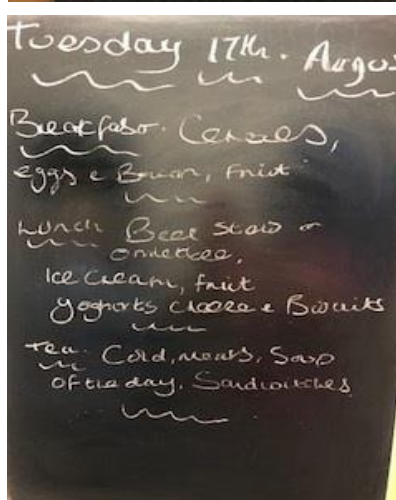 Tuesday 17th. Augus
Breakfast. Cereals,
eggs & Bacon, Fruit
Lunch Beef Stew or
omelette,
Ice Cream, fruit
Yoghurts cheese & Biscuits
Tea. Cold, meats, Soup
of the day, Sandwitches